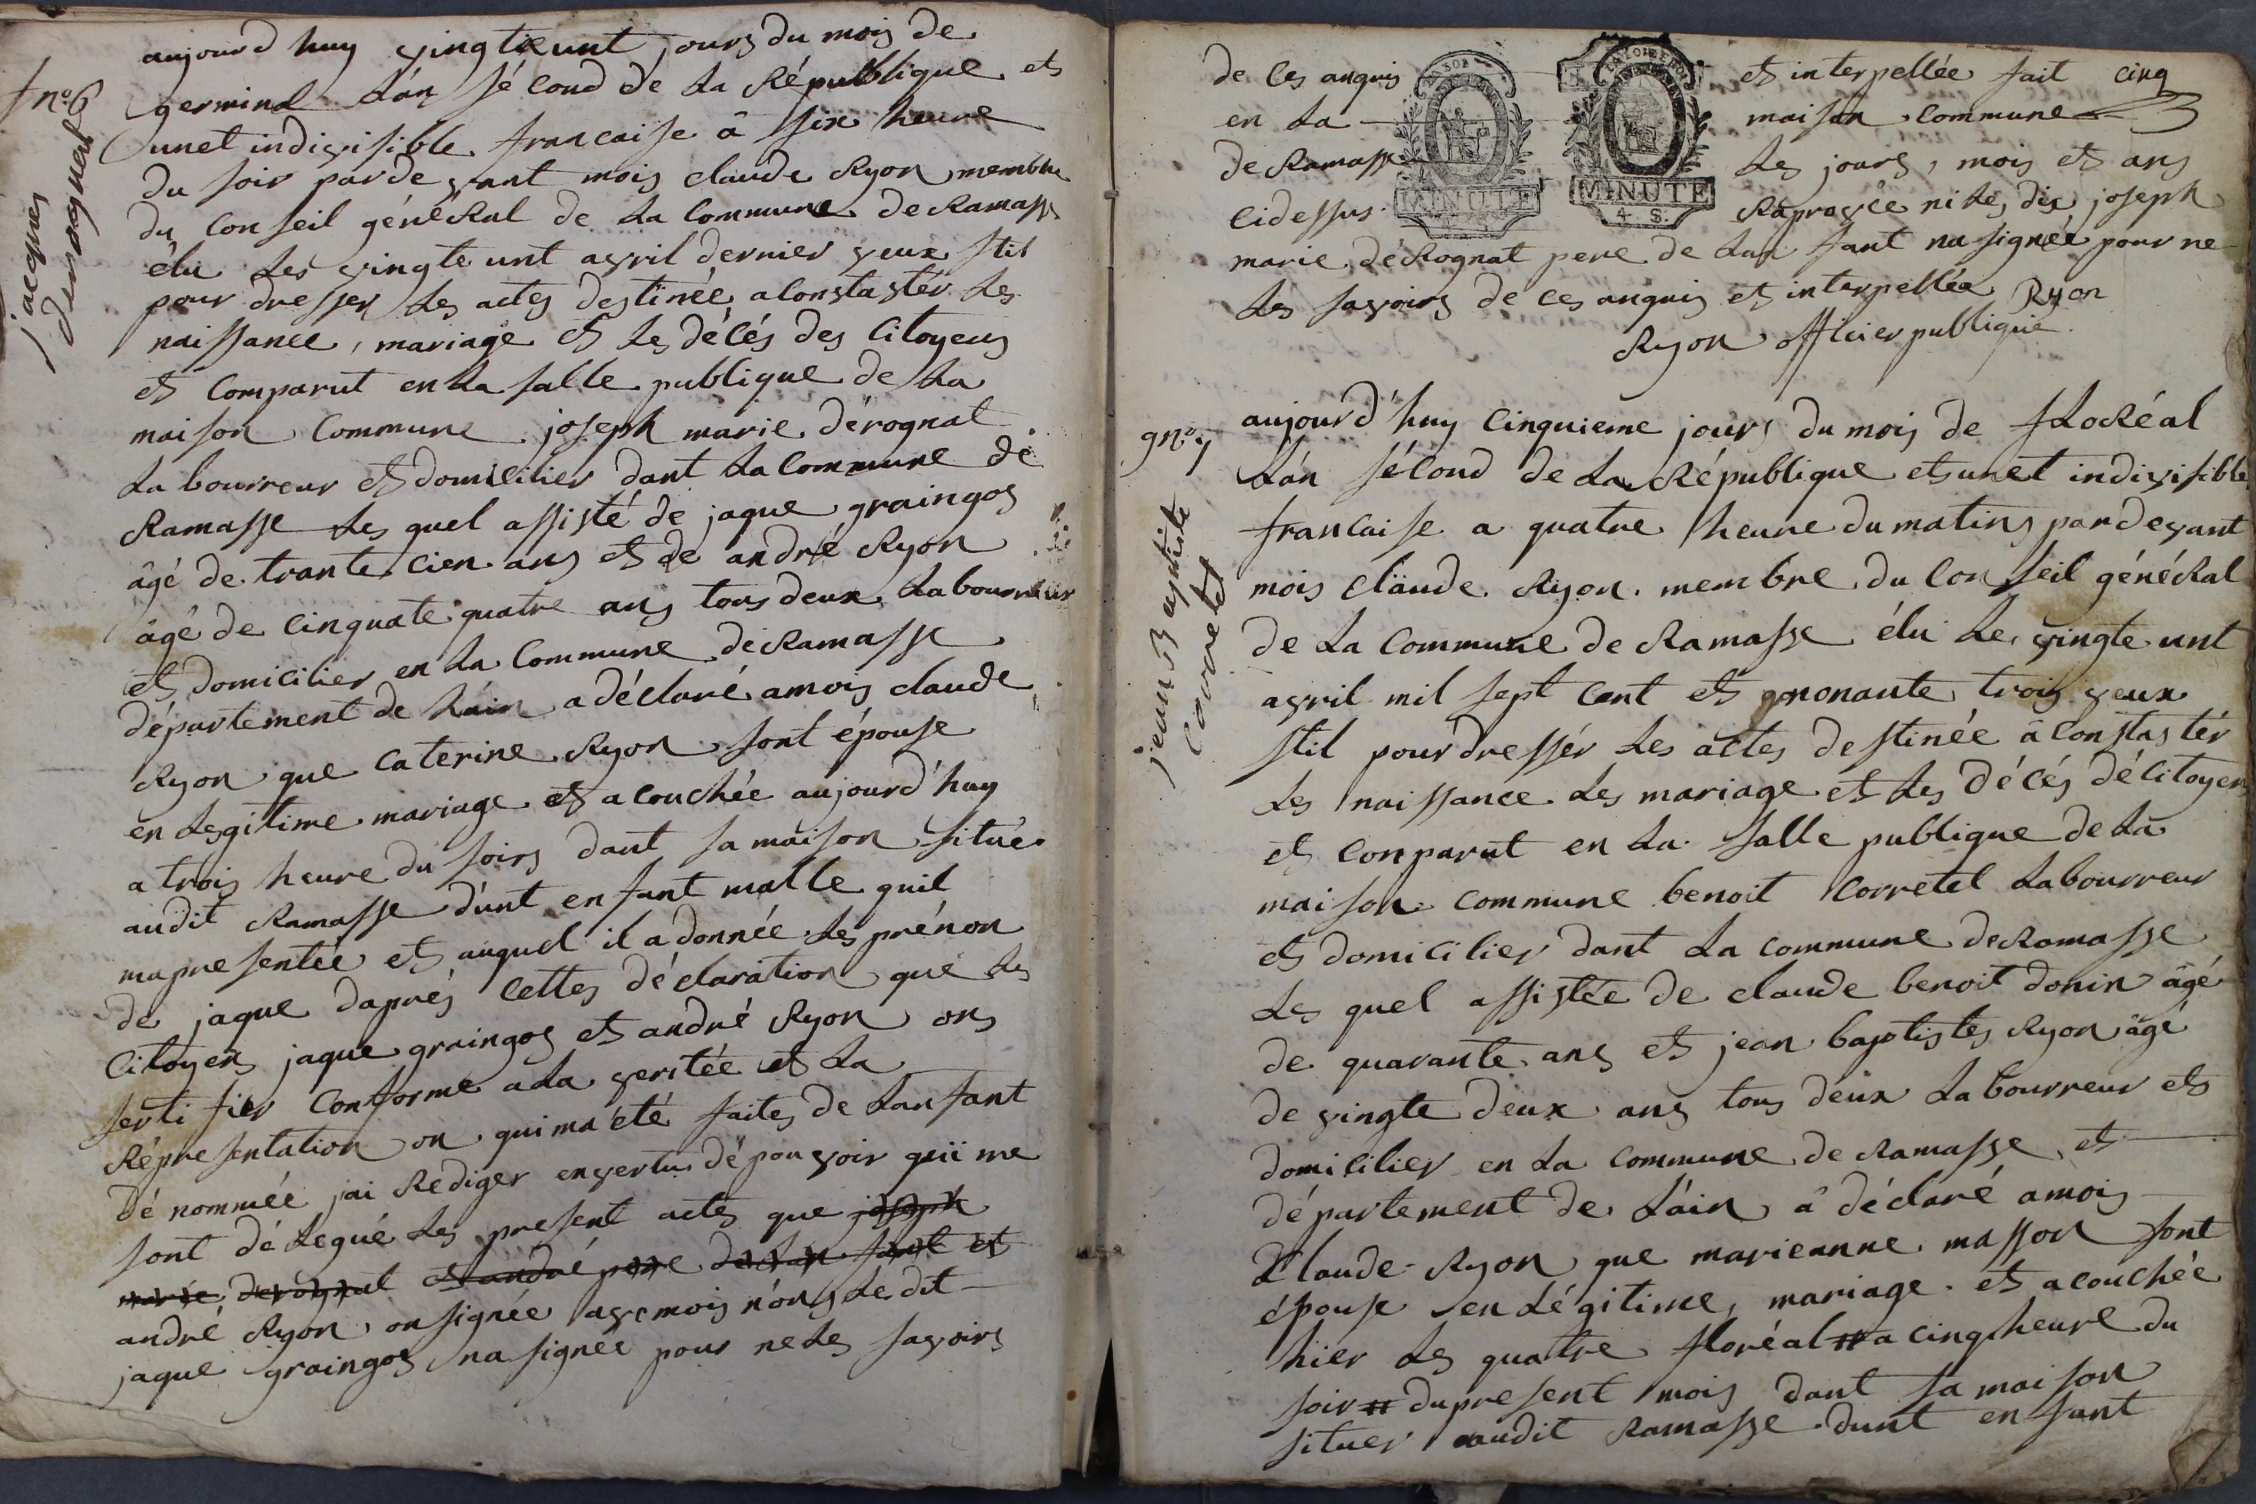 n.º 6
jacques
derognat
aujourd huy vingtieunt jours du mois de
germinal Lán sécond de La République et
unet indivisible francaise â six heure
du soir pardevant mois claude Ryon membre
du conseil généRal de La Commune de Ramasse
élu Les vingte unt avril dernier veux stil
pour dresser Les actes destinée a Constaster Les
naissance, mariage et Les décés des Citoyens
et Comparut en La salle publique de La
maison Commune joseph marie dérognat
La bourreur et domicilier dant La Commune de
Ramasse Les quel assisté de jaque graingos
âgé de trante cien ans et de andré Ryon
âgé de cinquate quatre ans tous deux Labourreur
et domicilier en La Commune de Ramasse
département de Lain a déclaré amois claude
Ryon que Caterine Ryon sont épouse
en Legitime mariage et acouchée aujourd'huy
a trois heure du soirs dant sa maison situé
audit Ramasse d'unt enfant malle quil
mapresentée et auquel il a donnée Les prénon
de jaque daprés cettes déclaration que Les
Citoyens jaque graingos et andré Ryon ons
sertifier Conforme a La veritée et La
Répresentation on qui ma été faites de Lanfant
dé nommée jai Rediger en vertu dé pouvoir qui me
sont délegué Les present actes que joseph
marie derognat et andré pere de Lan fant et
andré Ryon on signée avemois nons Ledit
jaque graingos na signée pour ne Les savoirs
de Ces anquis et interpellée fait cinq
en La maison Commune
de Ramasse Les jours, mois et ans
Cidessus Raprovée ni Les dis joseph
MINUTE
4. S.
MINUTE
marie déRognat pere de Lan fant na signée pour ne
Les savoirs de Ces anquis et interpellée Ryon
Ryon officier publiquie
n.º 7
jean Baptiste
Corretel
aujourd'huy Cinquieme jours du mois de floRéal
Lán sécond de La République et unet indivisible
francaise a quatre heure du matins pardevant
mois Claude Ryon membre du Conseil généRal
de La Commune de Ramasse élu Le vingte unt
avril mil sept Cent et nonante trois veux
stil pour dressér Les actes destinée â Constastér
Les naissance Les mariage et Les décés dé Citoyen
et Conparut en La salle publique de La
maison commune benoit Corretel Labourreur
et domicilier dant La commune de Ramasse
Les quel assistée de claude benoit donin âgé
de quarante ans et jean baptistes Ryon âgé
de vingte deux ans tous deux Labourreur et
domicilier en La commune de Ramasse et
département de Láin â déclaré amois
Claude Ryon que marieanne masson sont
épouse en Légitime mariage et acouchée
hier Les quatre floréal a cinq heure du
soir du present mois dant sa maison
situer audit Ramasse dunt enfant